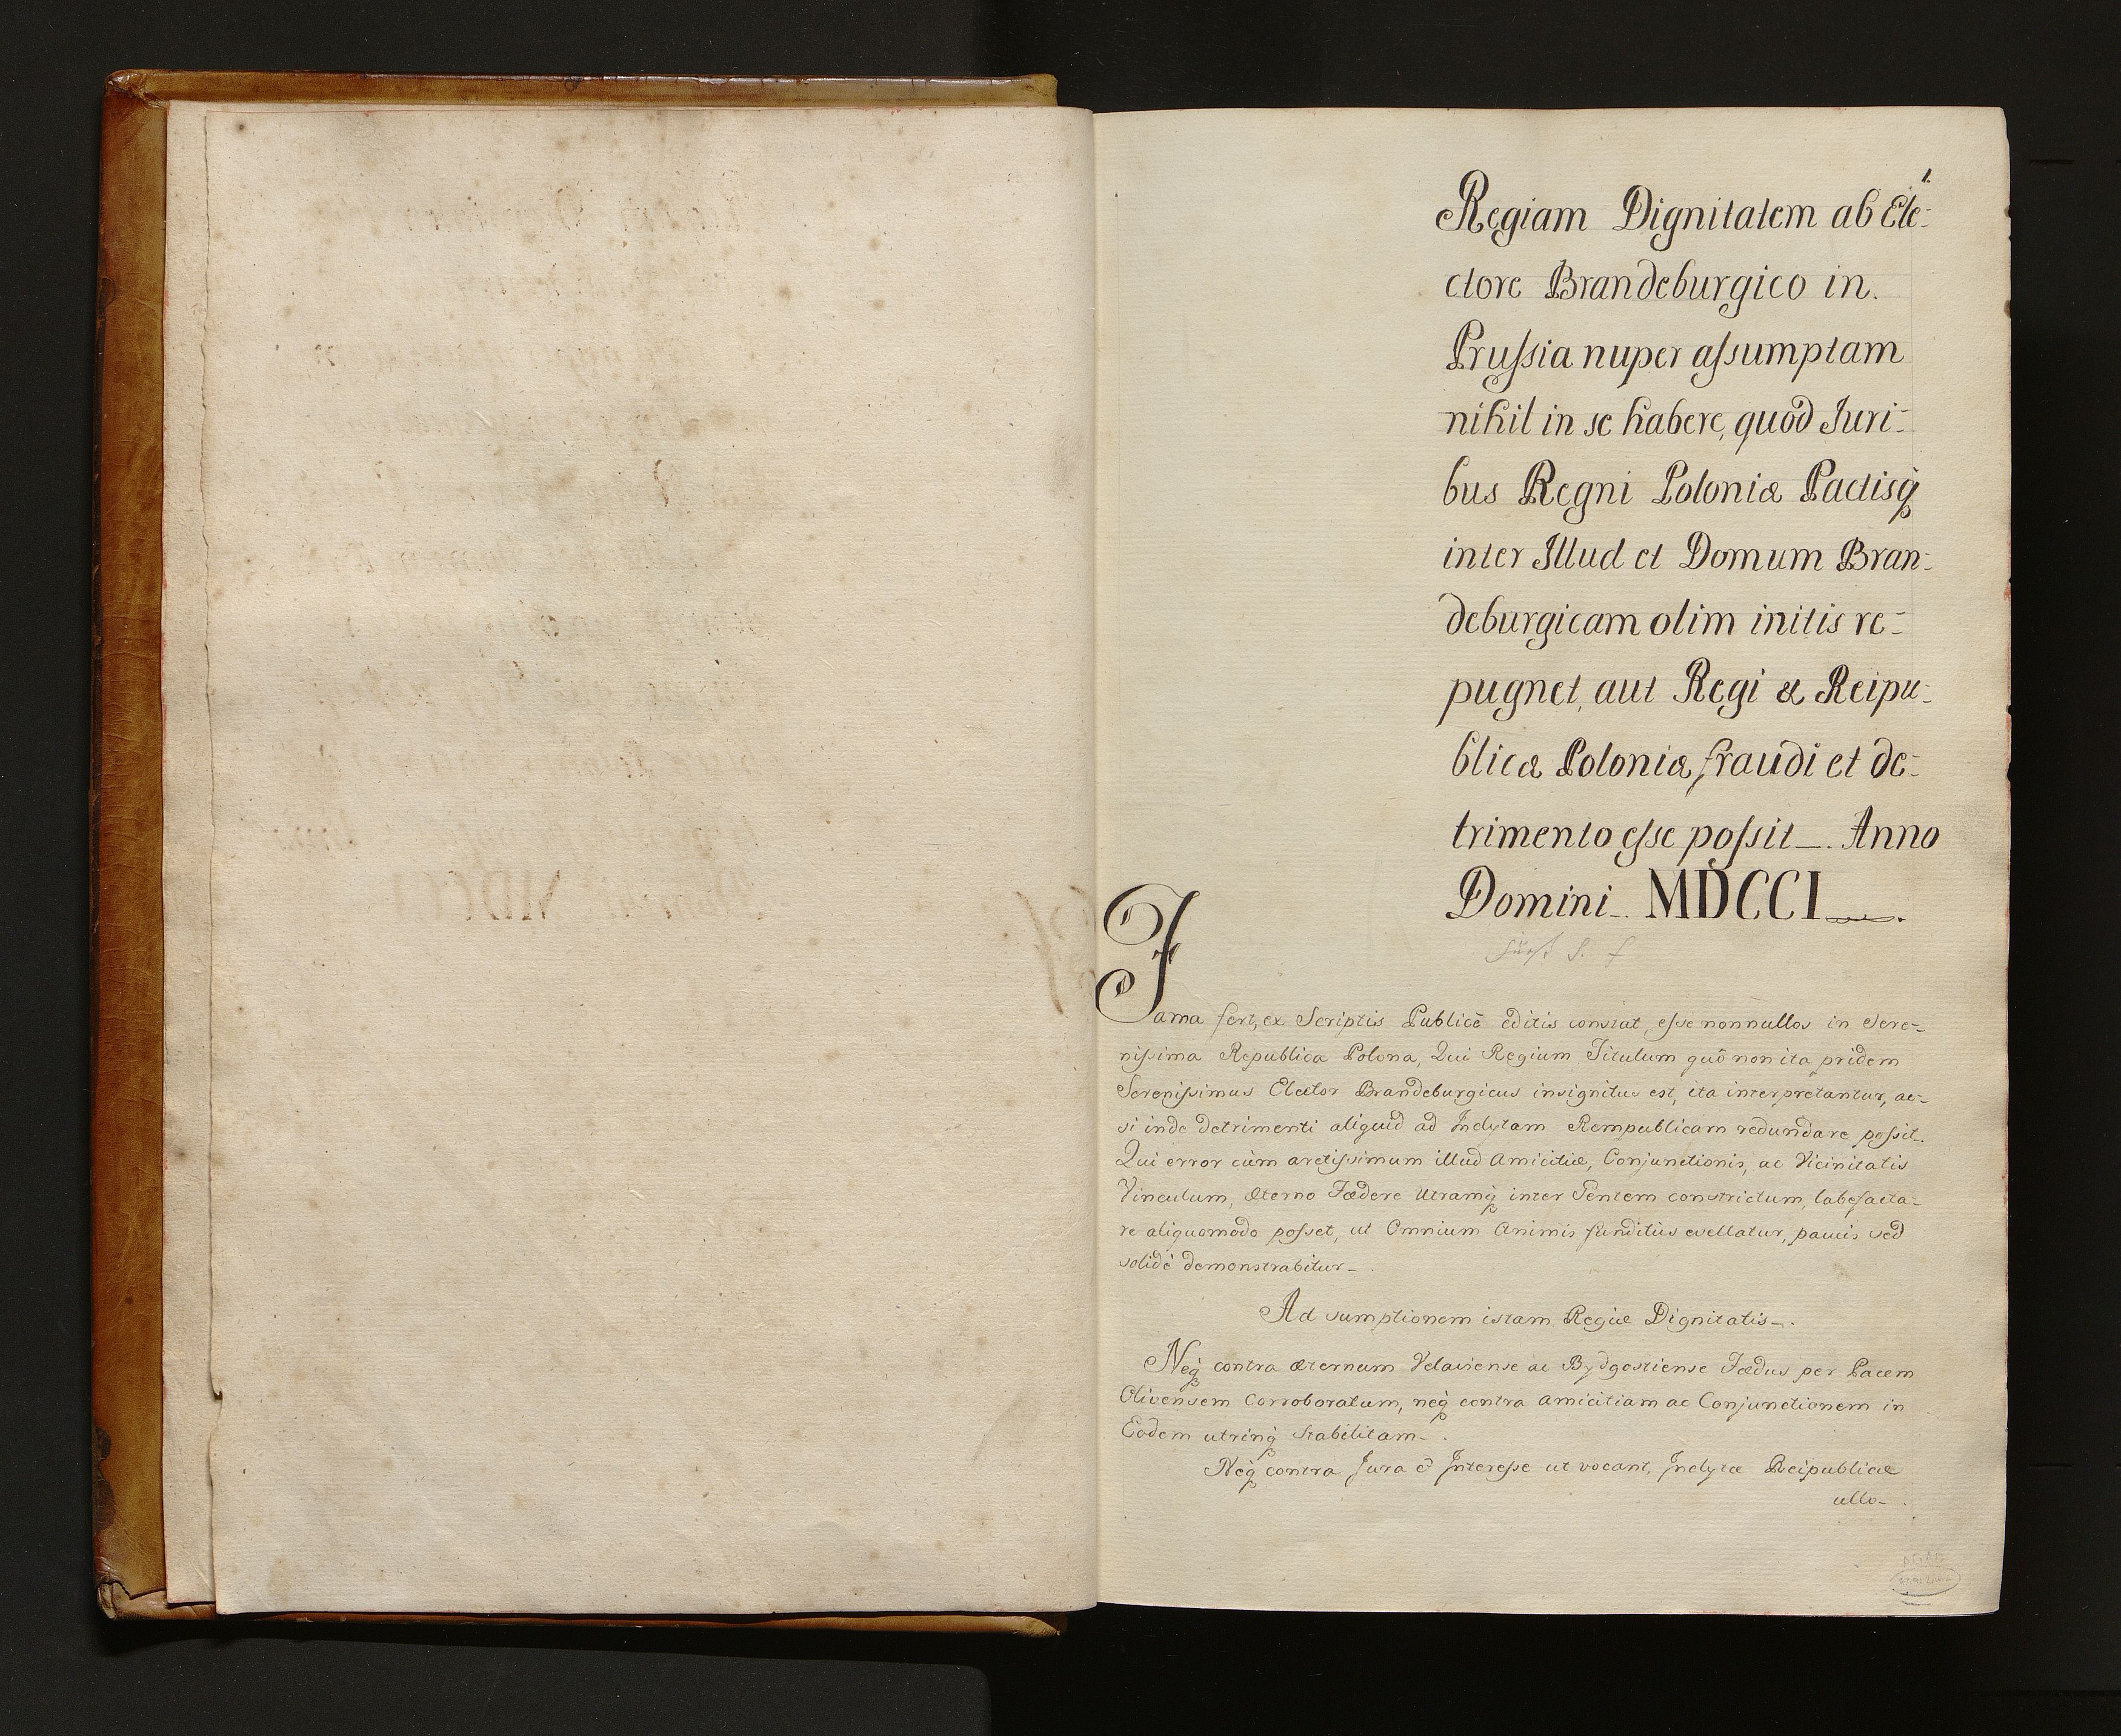 1.
Regiam Dignitatem ab Ele-
ctore Brandeburgico in.
Pruſsia nuper aſsumptam
nihil in se habere, quod Juri-
bus Regni Poloniæ Pactisq̀
inter Illud et Domum Bran-
deburgicam olim initis re-
pugnet, aut Regi & Reipu-
blicæ Poloniæ, fraudi et de-
trimento eſse poſsit_. Anno
Domini_. MDCCI__.
Fama fert, ex Scriptis Publicè editis constat, eſse nonnullos in Sere-
niſsima Republica Polona, Qui Regium Titulum quô non ita pridem
Sereniſsimus Elector Brandeburgicus insignitus est, ita interpretantur, ac-
si inde detrimenti aliquid ad Inclytam Rempublicam redundare poſsit.
Qui error cùm arctiſsimum illud Amicitiæ, Conjunctionis, ac Vicinitatis
Vinculum, æterno Fœdere Utramq̀ inter Gentem constrictum, labefacta-
re aliquomodo poſset, ut Omnium Animis funditùs evellatur, paucis sed
solidè demonstrabitur_.
Ad sumptionem istam Regiæ Dignitatis_.
Neq̀ contra æternum Velaviense ac Bydgostiense Fœdus per Pacem
Olivensem Corroboratum, neq̀ contra Amicitiam ac Conjunctionem in
Eodem utrinq̀ stabilitam_.
Neq̀ contra Jura & Intereſse ut vocant, Inclytæ Reipublicæ
ullo_.